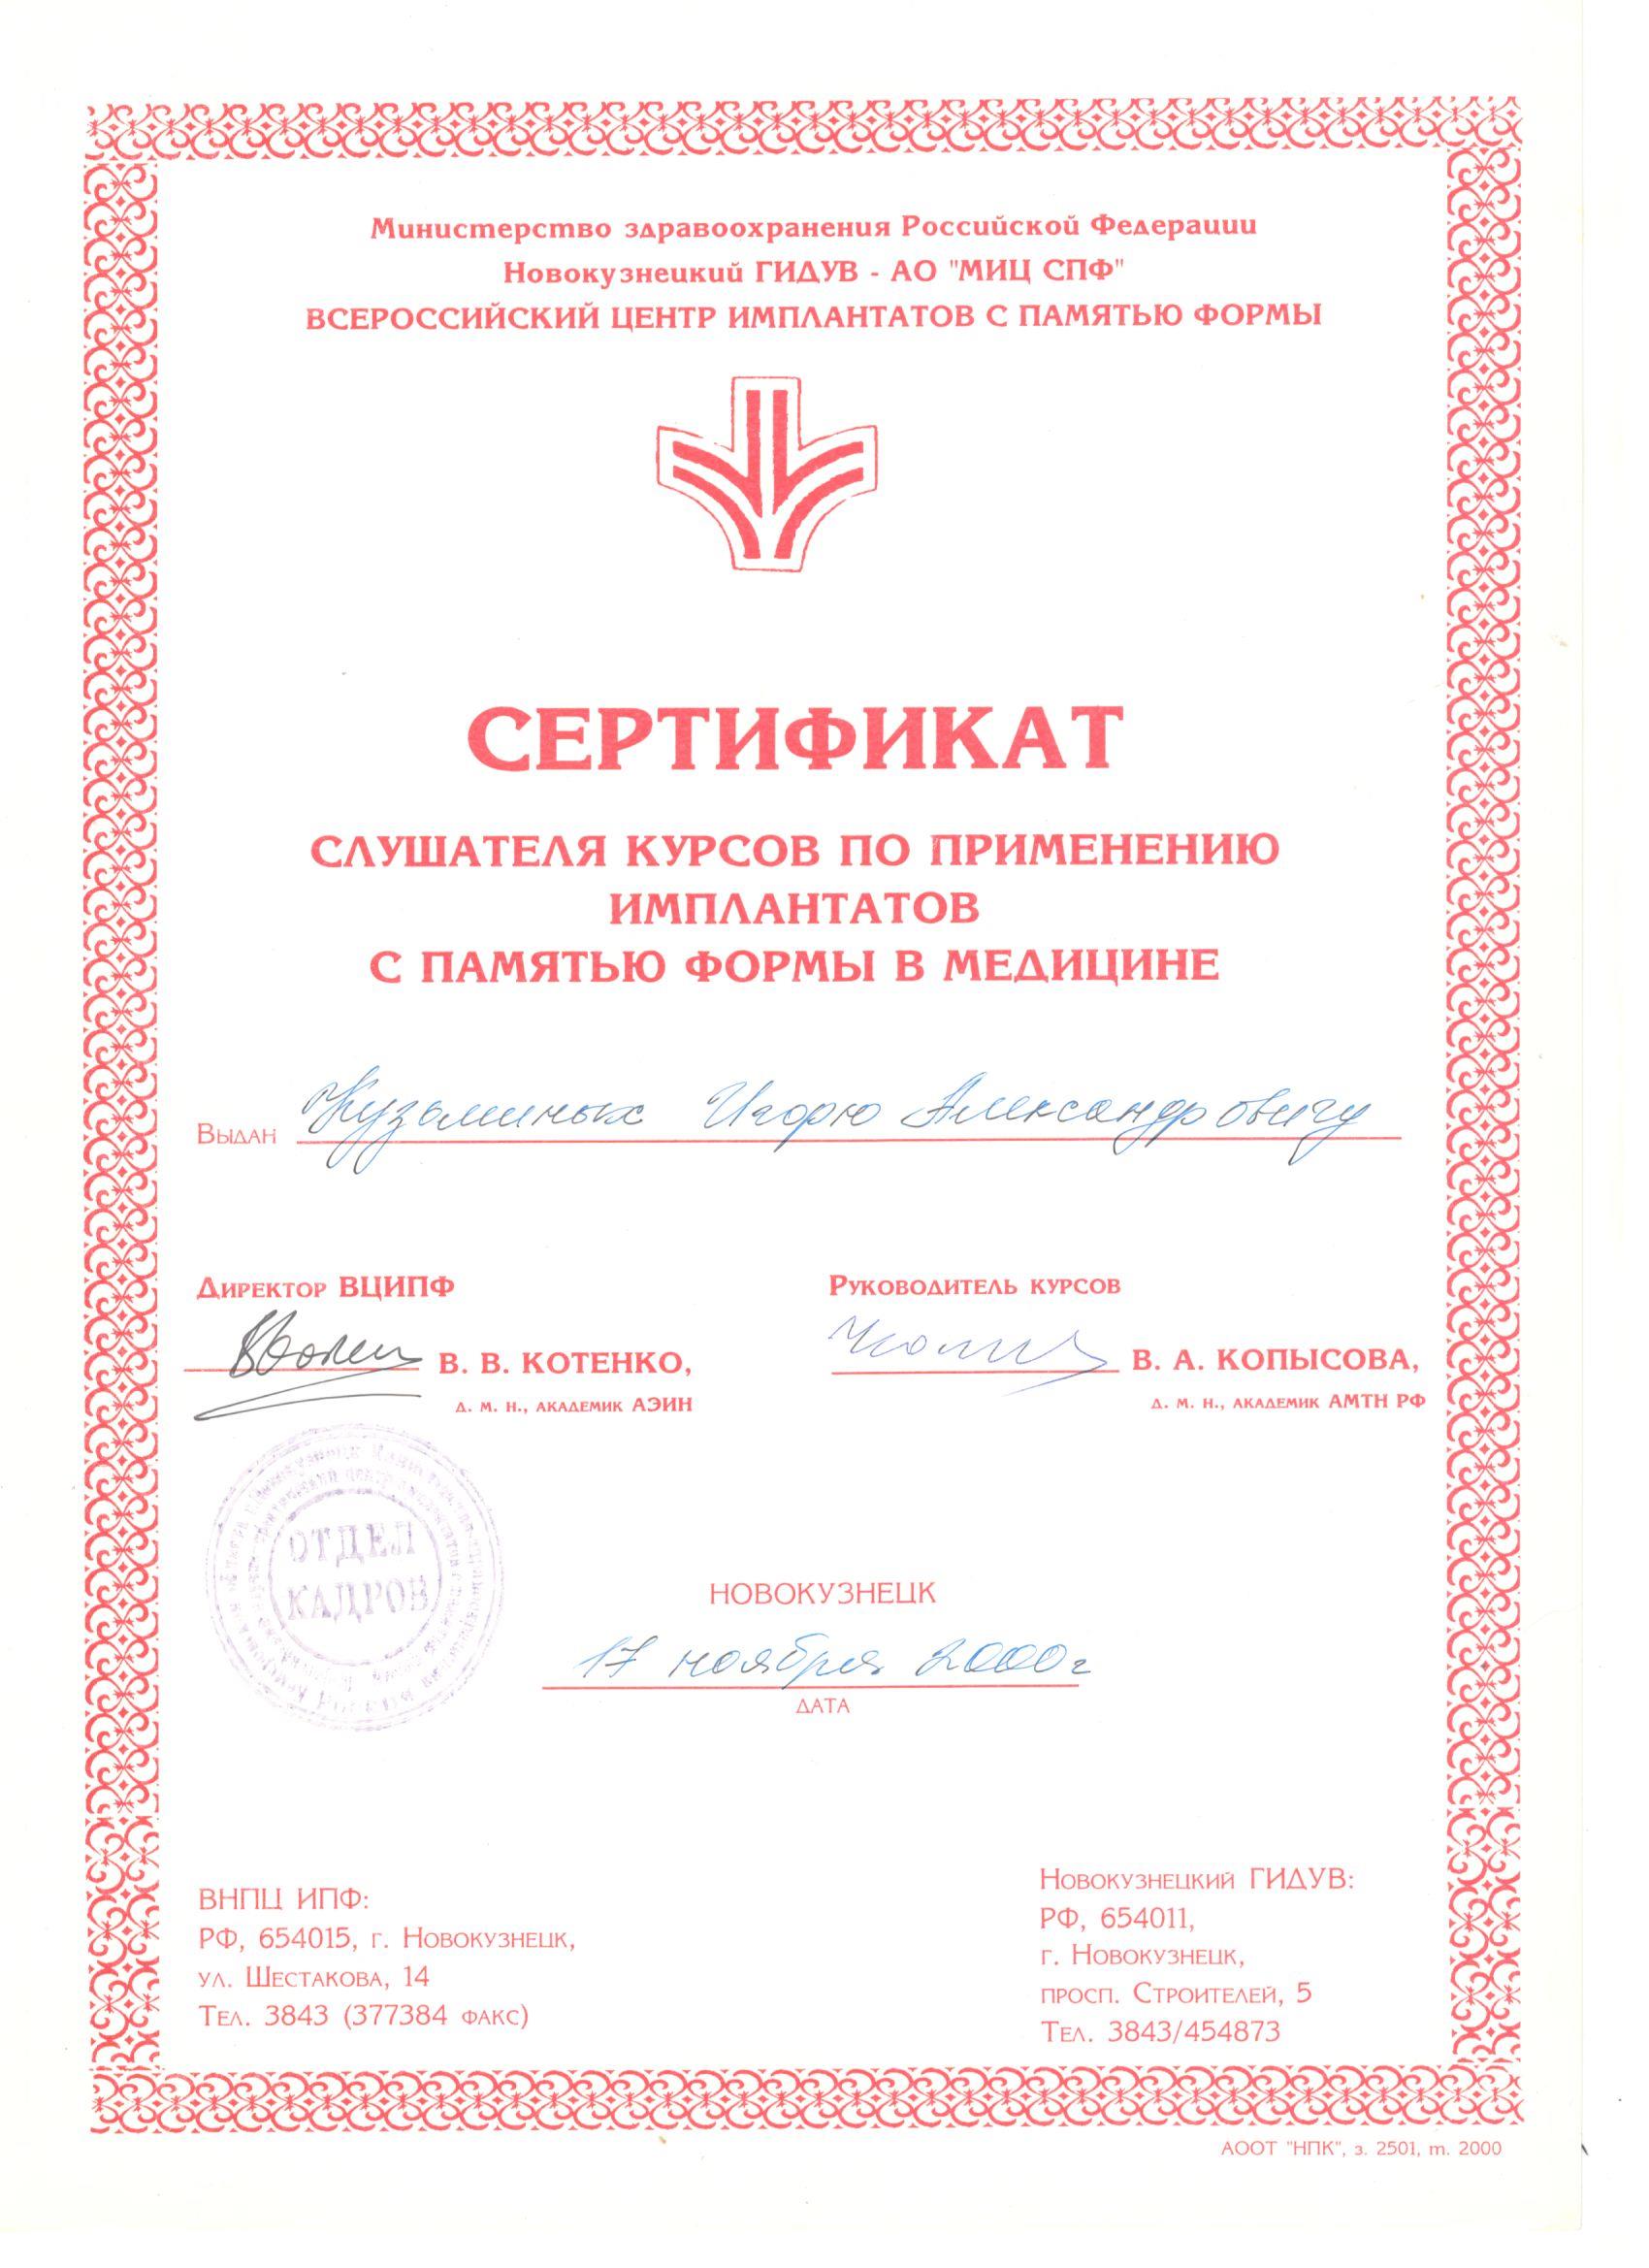 Министерство здравоохранения Российской Федерации
Новокузнецкий ГИДУВ - АО "МИЦ СПФ"
ВСЕРОССИЙСКИЙ ЦЕНТР ИМПЛАНТАТОВ С ПАМЯТЬЮ ФОРМЫ
СЕРТИФИКАТ
СЛУШАТЕЛЯ КУРСОВ ПО ПРИМЕНЕНИЮ
ИМПЛАНТАТОВ
С ПАМЯТЬЮ ФОРМЫ В МЕДИЦИНЕ
Выдан Кузьминых Игорю Александровичу
Директор ВЦИПФ
В. В. КОТЕНКО,
Д. М. Н., АКАДЕМИК АЭИН
Руководитель курсов
В. А. КОПЫСОВА,
Д. М. Н., АКАДЕМИК АМТН РФ
ОТДЕЛ
КАДРОВ
НОВОКУЗНЕЦК
17 ноября 2000г
ДАТА
ВНПЦ ИПФ:
РФ, 654015, г. Новокузнецк,
ул. Шестакова, 14
Тел. 3843 (377384 факс)
Новокузнецкий ГИДУВ:
РФ, 654011,
г. Новокузнецк,
просп. Строителей, 5
Тел. 3843/454873
АООТ "НПК", з. 2501, т. 2000